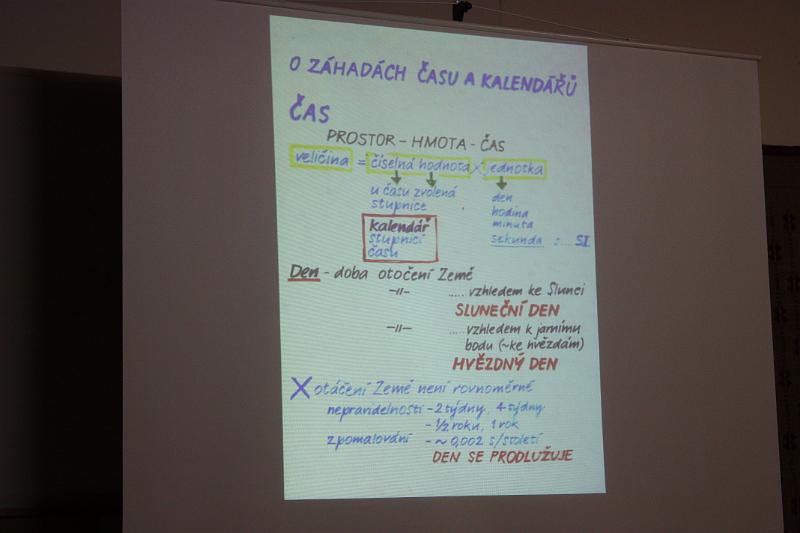 O ZÁHADÁCH ČASU A KALENDÁŘŮ
ČAS
PROSTOR – HMOTA - ČAS
veličina = číselná hodnota × jednotka
u času zvolená
stupnice
kalendář
stupnicí
času
den
hodina
minuta
sekunda s... SI
Den - doba otočení Země
-"- ...... vzhledem ke Slunci
SLUNEČNÍ DEN
-"- .... vzhledem k jarnímu
bodu (~ke hvězdám)
HVĚZDNÝ DEN
X otáčení Země není rovnoměrné
nepravidelnosti - 2 týdny, 4 týdny
- 1/2 roku, 1 rok
zpomalování - ~ 0,002 s/století
DEN SE PRODLUŽUJE